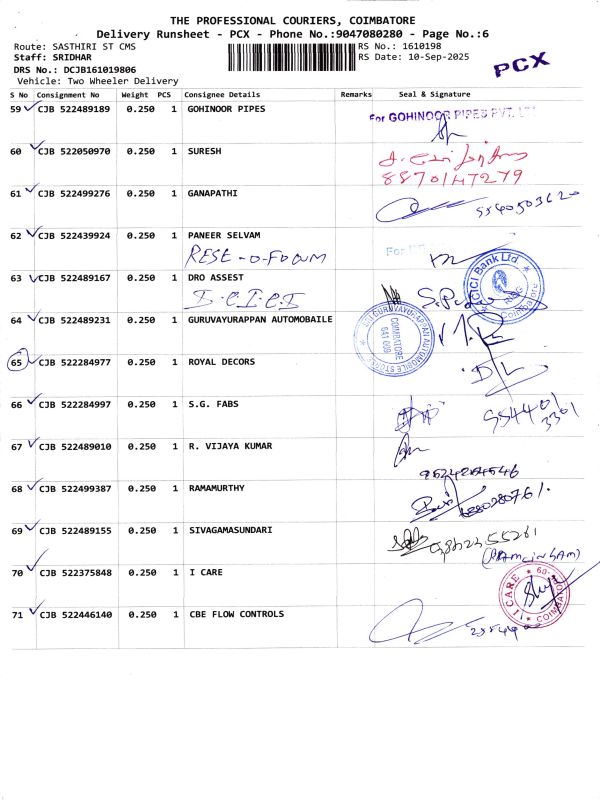 THE PROFESSIONAL COURIERS, COIMBATORE
Delivery Runsheet - PCX - Phone No.:9047080280 - Page No.:6
Route: SASTHIRI ST CMS
RS No.: 1610198
Staff: SRIDHAR
RS Date: 10-Sep-2025
PCX
DRS No.: DCJB161019806
Vehicle: Two Wheeler Delivery
S No Consignment No Weight PCS Consignee Details Remarks Seal & Signature
59 CJB 522489189 0.250 1 GOHINOOR PIPES
For GOHINOOR PIPES PVT.
60 CJB 522050970 0.250 1 SURESH
8870147279
61 CJB 522499276 0.250 1 GANAPATHI
62 CJB 522439924 0.250 1 PANEER SELVAM
For
63 CJB 522489167 0.250 1 DRO ASSEST
ICICI Bank Ltd
Coimbatore
I.C.I.C.I
64 CJB 522489231 0.250 1 GURUVAYURAPPAN AUTOMOBAILE
SRI GURUVAYURAPPAN AUTOMOBILE STORES
COIMBATORE
641 009
65 CJB 522284977 0.250 1 ROYAL DECORS
66 CJB 522284997 0.250 1 S.G. FABS
67 CJB 522489010 0.250 1 R. VIJAYA KUMAR
68 CJB 522499387 0.250 1 RAMAMURTHY
69 CJB 522489155 0.250 1 SIVAGAMASUNDARI
70 CJB 522375848 0.250 1 I CARE
I CARE
COIMBATORE
71 CJB 522446140 0.250 1 CBE FLOW CONTROLS